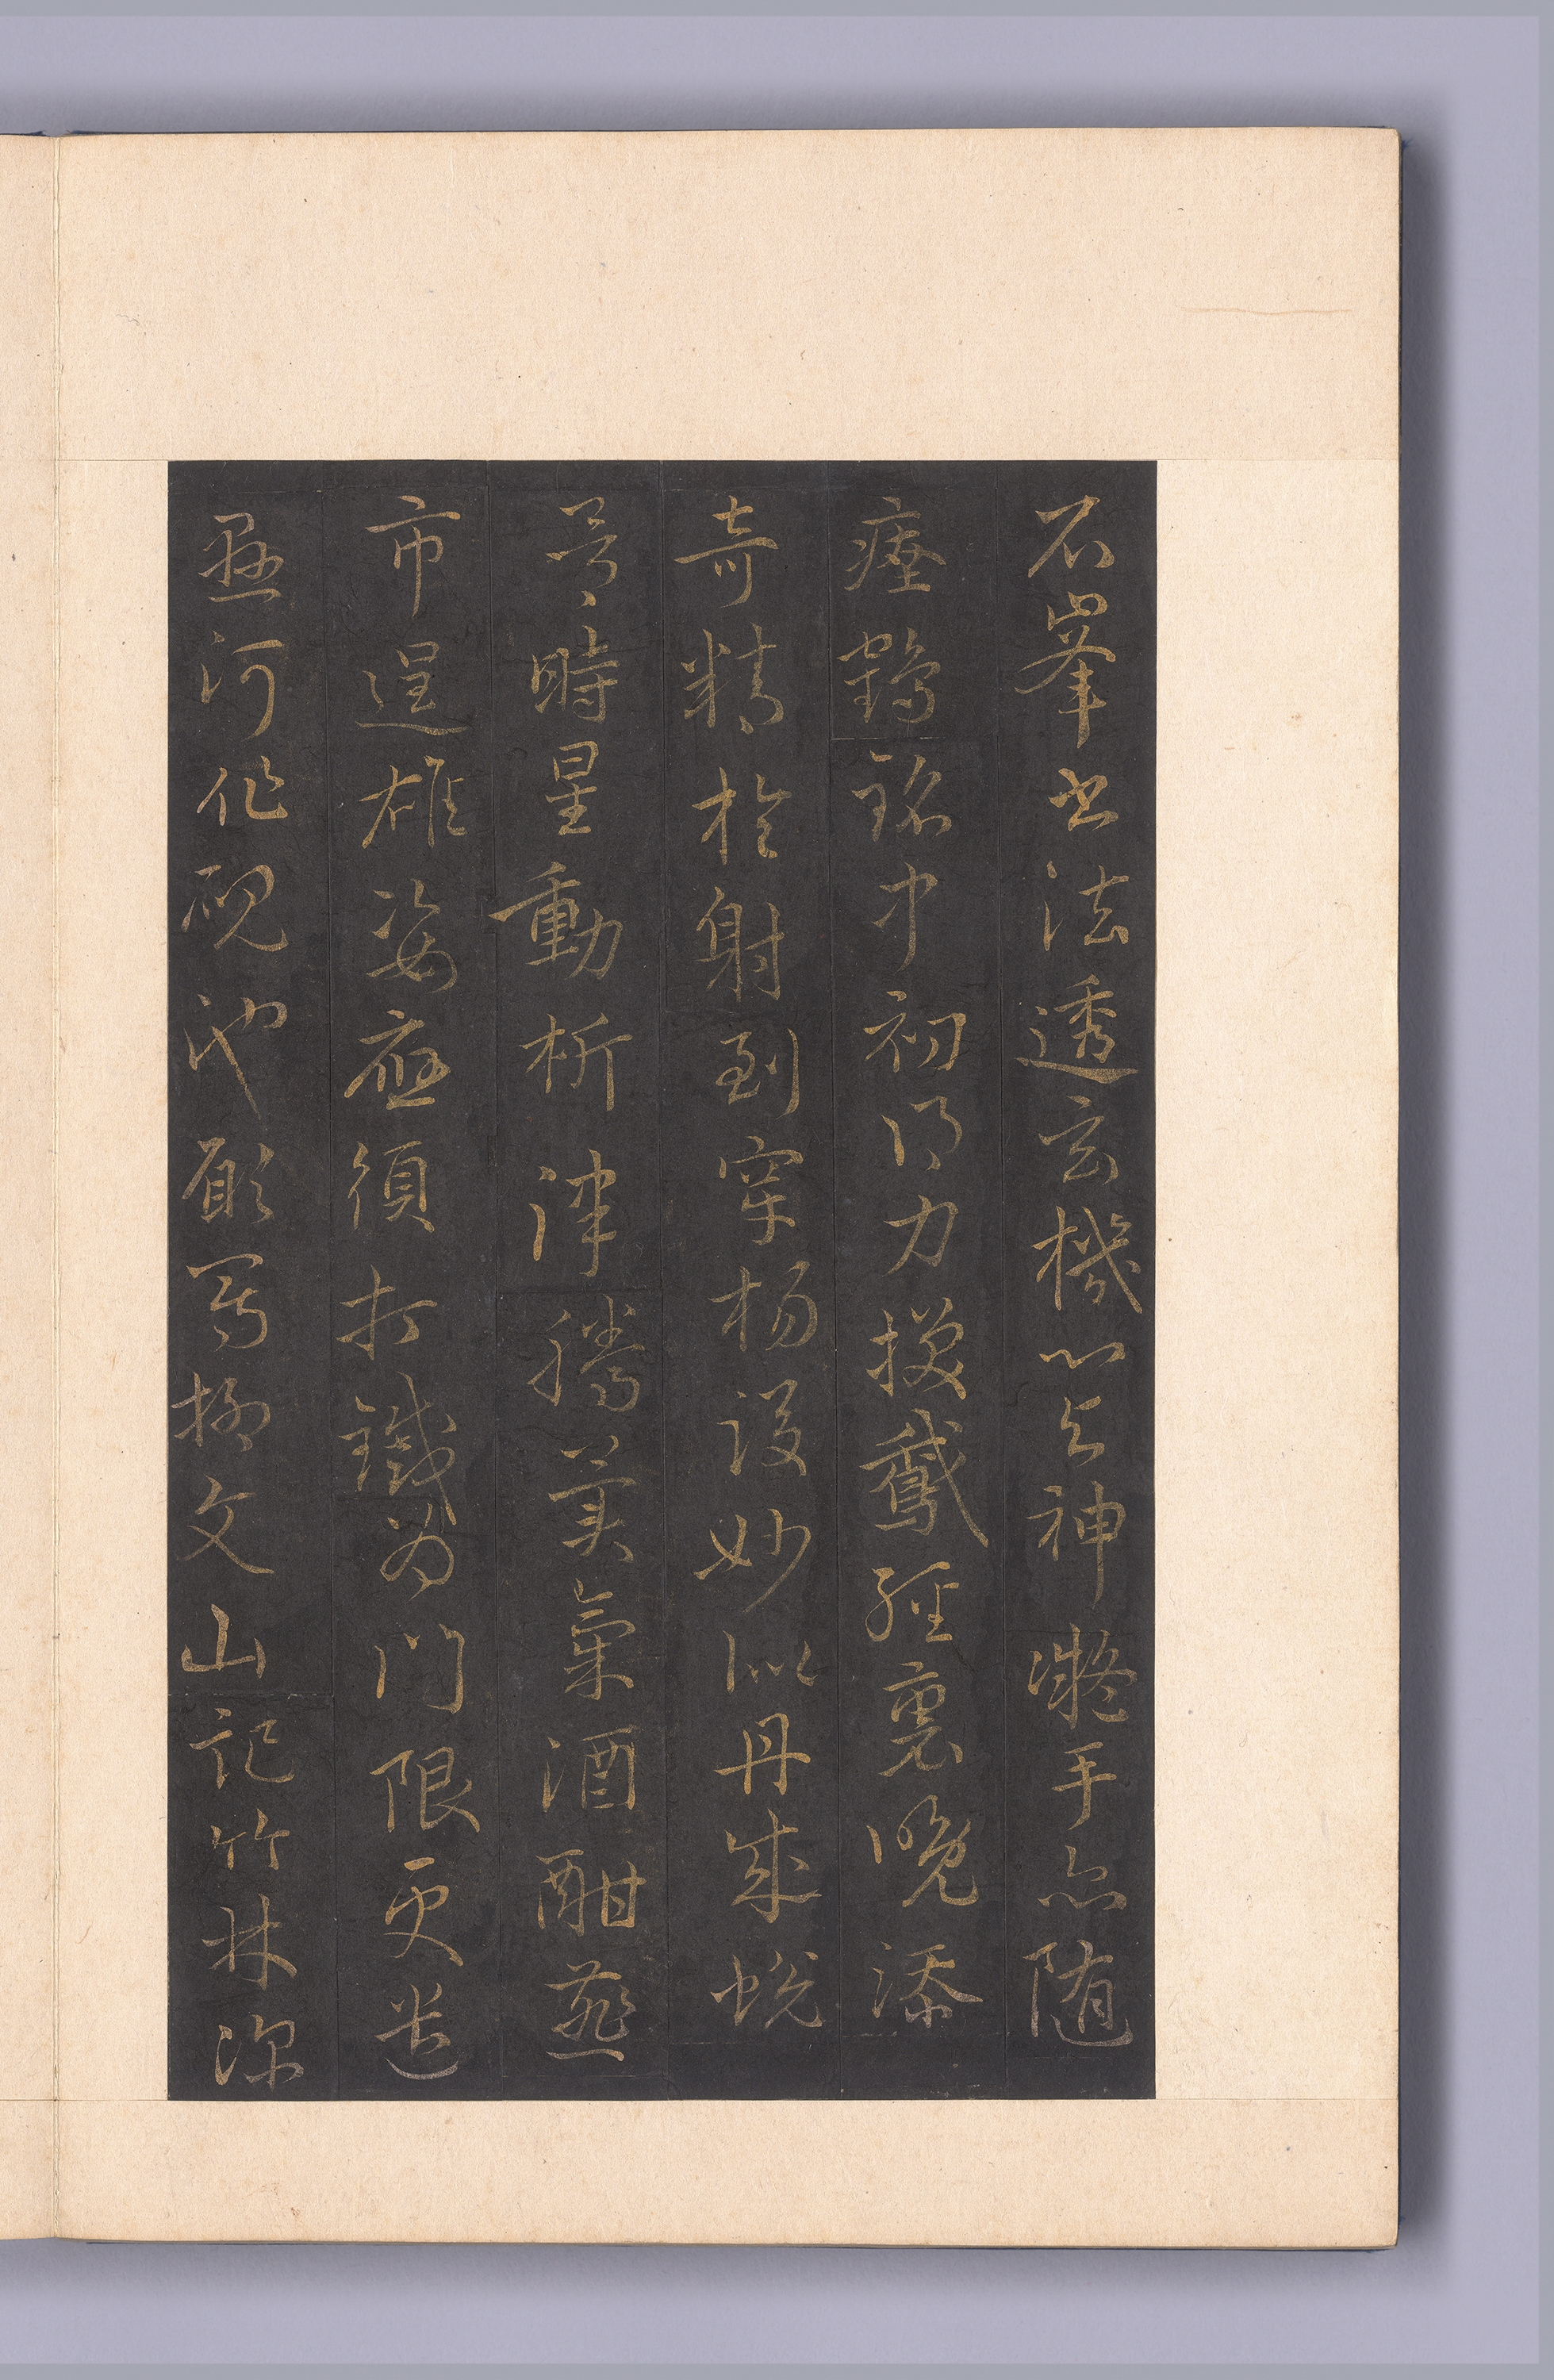 石峯書法透玄機心與神凝手亦随
瘞鶴銘中初得力換鵝經裏晚添
奇精於射到穿楊後妙似丹成蛻
骨時星動析津騰異氣酒酣燕
市逞雄姿應須打鐵為門限更遣
懸河作硯池願寫柳文山記竹林深